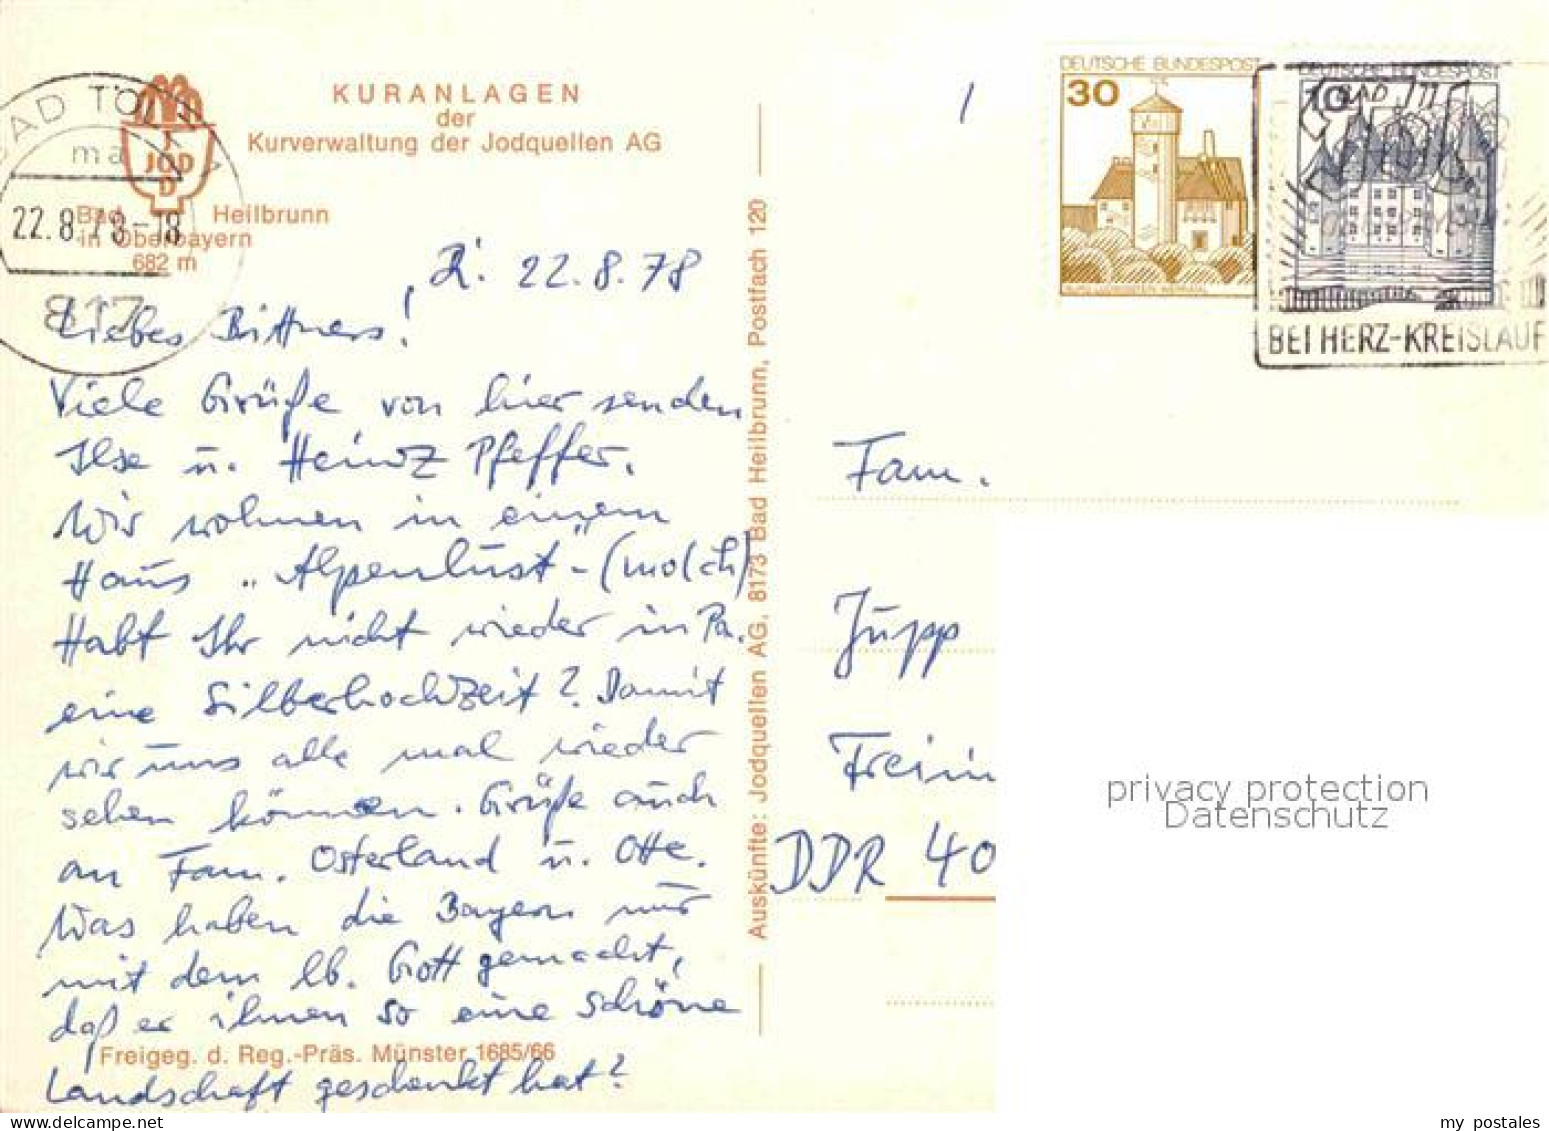 KURANLAGEN
der
Kurverwaltung der Jodquellen AG
JOD
Bad Heilbrunn
in Oberbayern
682 m
BAD TÖLZ
ma
22.8.78-18
817
DEUTSCHE BUNDESPOST
30
DEUTSCHE BUNDESPOST
10
BAD TÖLZ
BEI HERZ-KREISLAUF
22.8.78
Liebes Bittners!
Viele Grüße von hier senden
Ilse u. Heinz Pfeffer.
Wir wohnen in einem
Haus „Alpenlust" - (molch)
Habt Ihr nicht wieder in Pa.
eine Silberhochzeit? Damit
wir uns alle mal wieder
sehen können. Grüße auch
an Fam. Osterland u. Otte.
Was haben die Bayern nur
mit dem lb. Gott gemacht,
daß er ihnen so eine schöne
Landschaft geschenkt hat?
Freigeg. d. Reg.-Präs. Münster 1685/66
Auskünfte: Jodquellen AG, 8173 Bad Heilbrunn, Postfach 120
Fam.
Jupp
Freim
DDR 40
privacy protection
Datenschutz
my postales